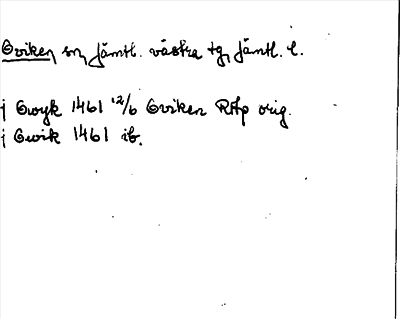 Oviken sn, Jämtl. västra tg, Jämtl. l.
j Owyk 1461 12/6 Oviken RAp orig.
j Owik 1461 ib.